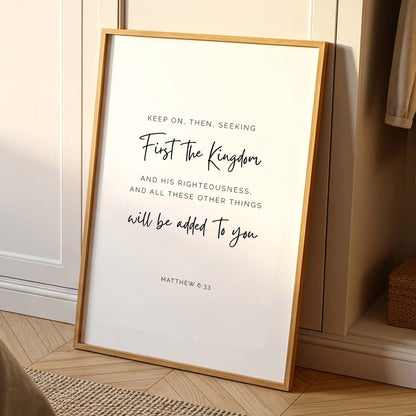 KEEP ON, THEN, SEEKING
First the Kingdom
AND HIS RIGHTEOUSNESS,
AND ALL THESE OTHER THINGS
will be added to you
MATTHEW 6:33